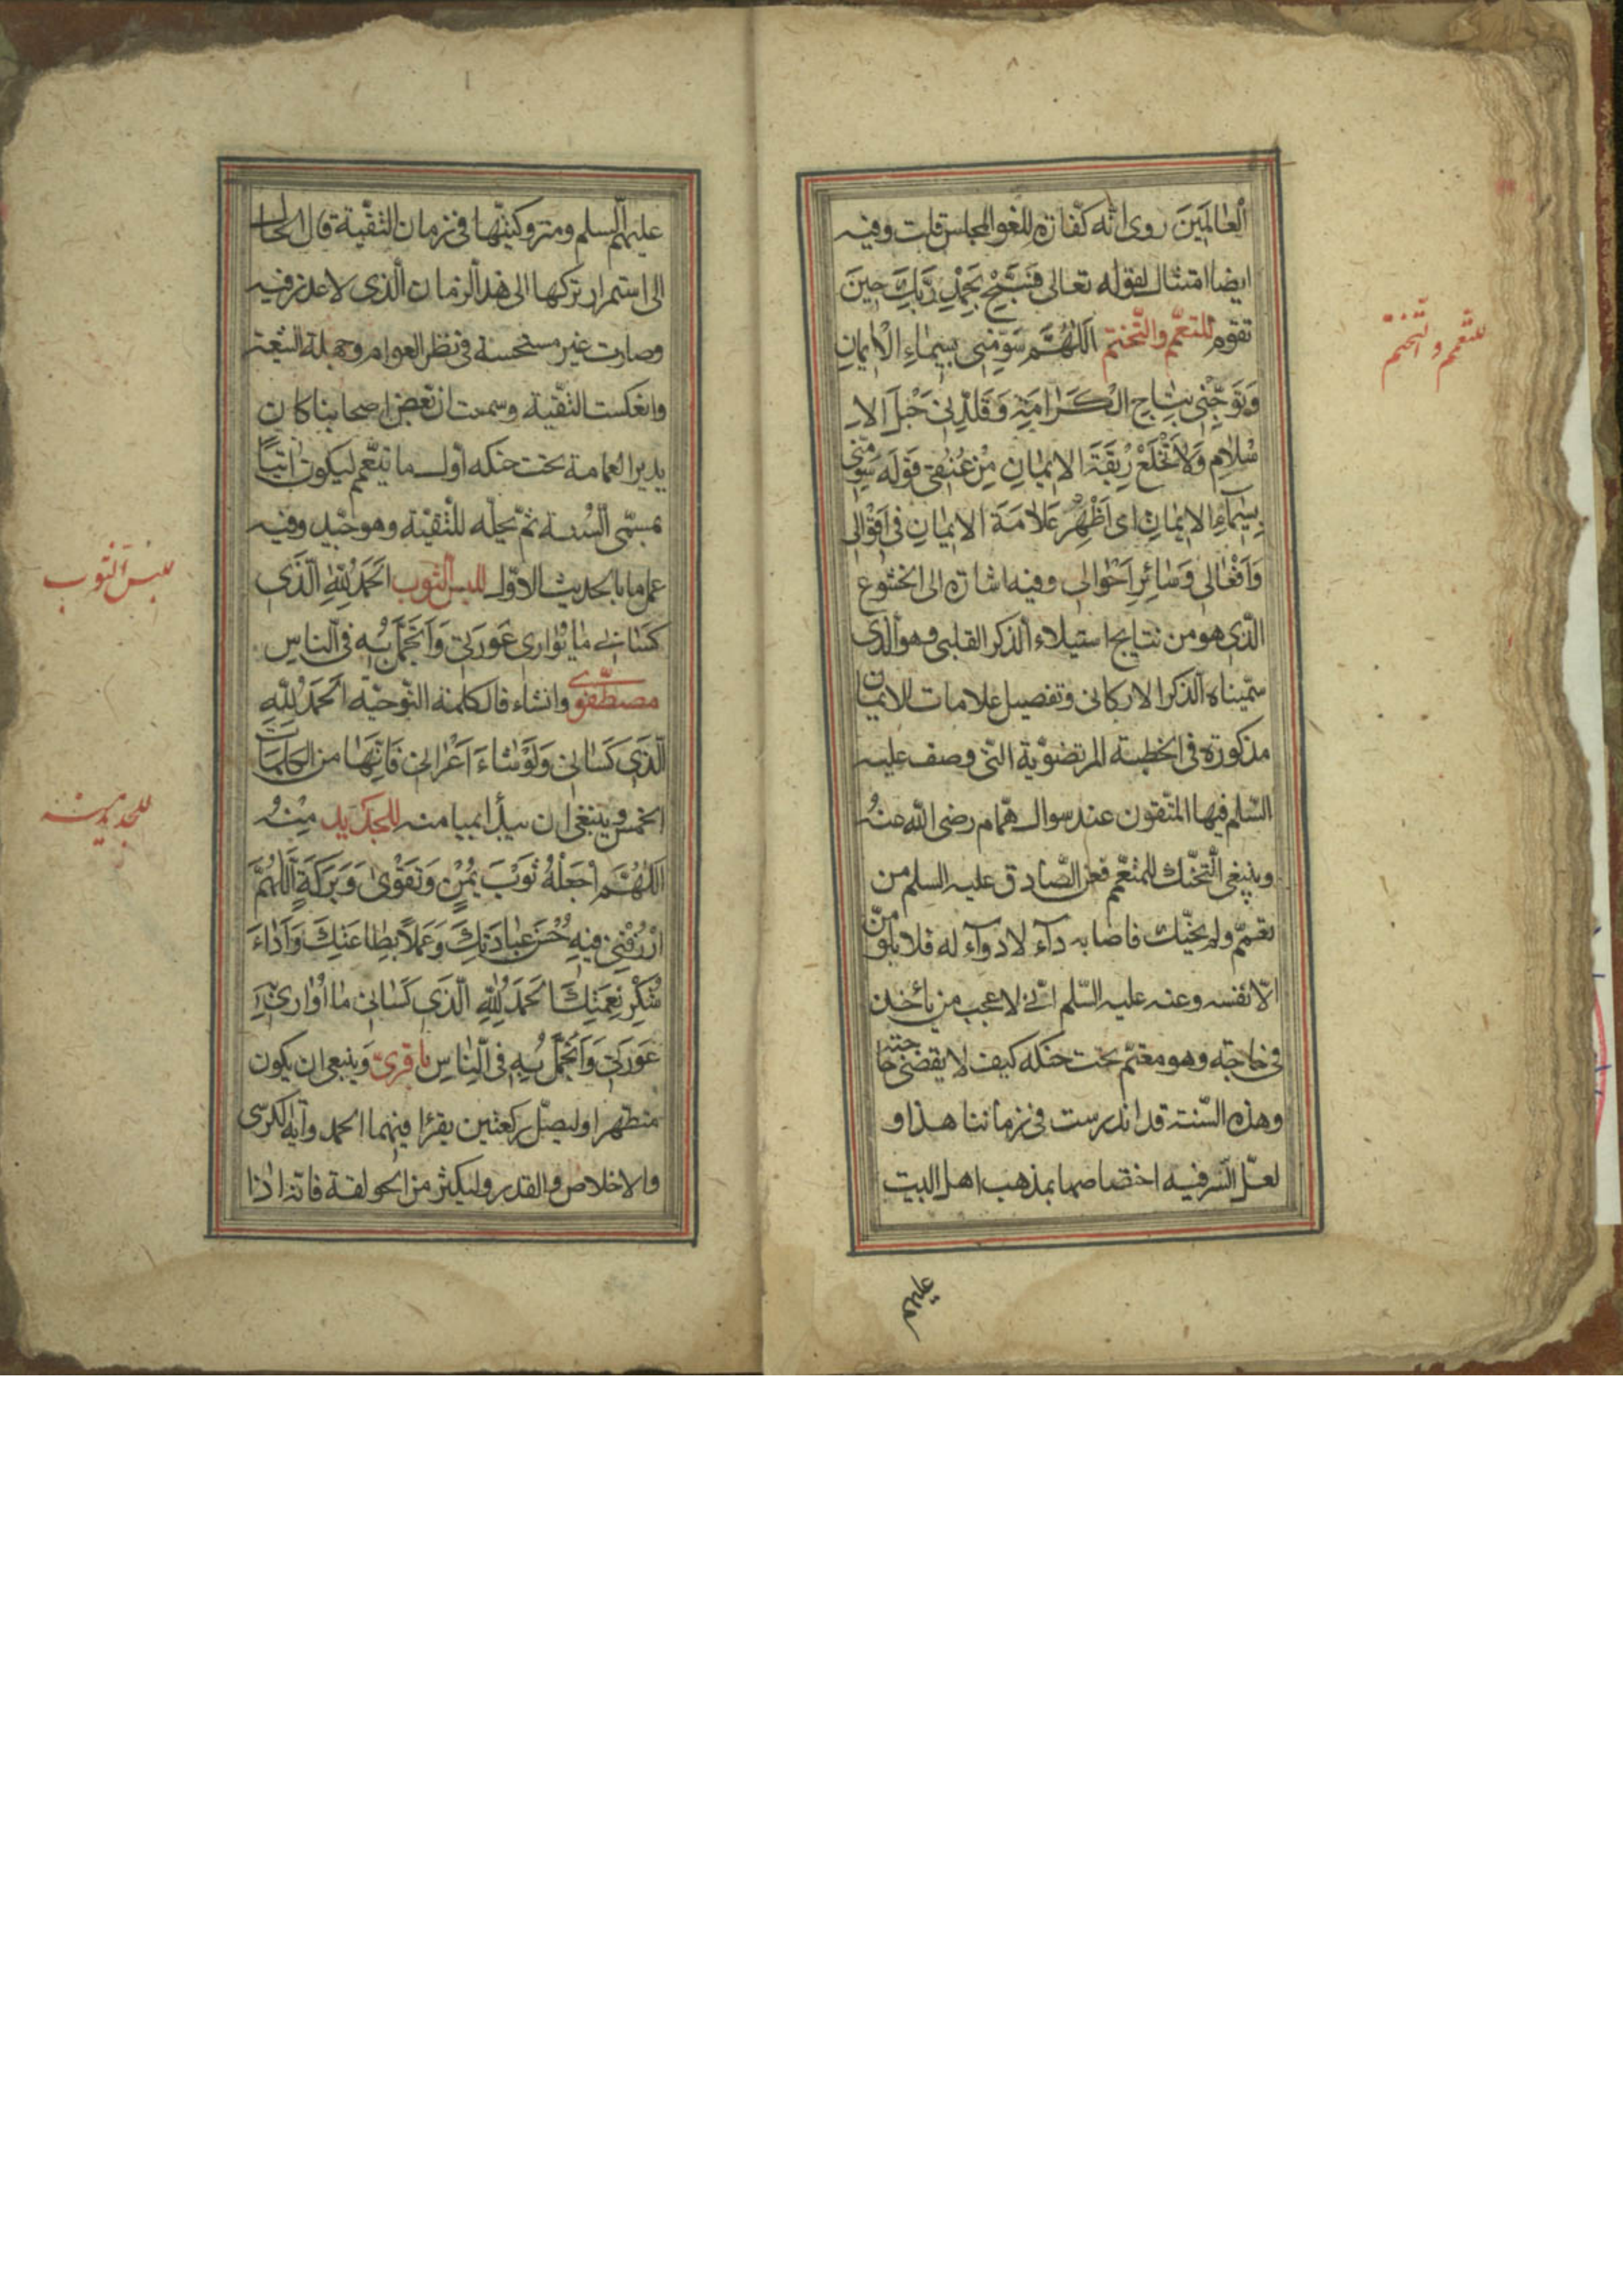 الْعالَمينَ روى انّه كفّارة للغو المجلس قلت وفيه
ايضا امتثال لقوله تعالى فَسَبِّحْ بِحَمْدِ رَبِّكَ حينَ
تقوم للتعمّم والتّختم اَللّٰهُمَّ سَوِّمْنى بِسيماءِ الْايمانِ
وَتَوِّجْنى بِتاجِ الْكَرامَةِ وَقَلِّدْنى حَبْلَ الاِ
سْلامِ وَلاتَخْلَعْ رِبْقَةَ الايمانِ مِنْ عُنُقى قوله سَوِّمْنى
بِسيماءِ الايمانِ اى اَظْهِرْ عَلامَةَ الايمانِ فى اَقْوالى
وَاَفْعالى وَسائِرِ اَحْوالى وفيه اشارة الى الخشوع
الّذى هو من نتايج استيلاء الذكر القلبى وهو الّذى
سمّيناه الذكر الاركانى وتفصيل علامات الايمان
مذكورة فى الخطبة المرتضويّة الّتى وصف عليه
السّلم فيها المتّقون عند سوال همّام رضى اللّه عنهُ
وينبغى التّحنّك للمتعمّم فعن الصّادق عليه السلم من
تعمّم ولم يحنّك فاصابه دآء لادوآء له فلا يلومنّ
الّا نفسه وعنه عليه السّلم انّى لاعجب من يأخذ
فى حاجة وهو معتمّ تحت حنكه كيف لا يقضى حاجته
وهذه السّنة قد اندرست فى زماننا هذا و
لعلّ السّر فيه اختصاصها بمذهب اهل البيت
عليهم
للتعمم والتّختم
عليهم السّلم ومتروكيّتها فى زمان التقيّة فال الحال
الى استمرار تركها الى هذا الزمان الّذى لاعذر فيه
وصارت غير مستحسنة فى نظر العوام وجهلة الشيعة
وانعكست التقيّة وسمعت انّ بعض اصحابنا كان
يدير العمامة تحت حنكه اوّل ما تعمّم ليكون اتيا
بمسمّى السّنة ثمّ يحلّه للتقيّة وهو جيّد وفيه
عمل ما بالحديث الاوّل للبس الثوب اَلْحَمْدُ لِلّٰهِ الَّذى
كَسانى ما يُوارى عَوْرَتى وَاَتَجَمَّلُ بِهِ فى النّاسِ
مصطفوى وانشاء قال كلمة التّوحيّة اَلْحَمْدُ لِلّٰهِ
الَّذى كَسانى وَلَوْ شاءَ اَعْرانى فَاِنَّها من الكلمات
الخمس وينبغى ان يبدأ بميامنه للجديد مِنْهُ
اَللّٰهُمَّ اجْعَلْهُ ثَوْبَ يُمْنٍ وَتَقْوىٰ وَبَرَكَةٍ اَللّٰهُمَّ
ارْزُقْنى فيهِ حُسْنَ عِبادَتِكَ وَعَمَلاً بِطاعَتِكَ وَاَداءَ
شُكْرِ نِعْمَتِكَ اَلْحَمْدُ لِلّٰهِ الَّذى كَسانى ما اُوارى بِهِ
عَوْرَتى وَاَتَجَمَّلُ بِهِ فى النّاسِ باقرىّ وَينبغى ان يكون
متطهرا وليصلّ ركعتين يقرأ فيهما الحمد وآية الكرسى
والاخلاص والقدر وليكثر من الحولقة فانّه اذا
للبس الثوب
للجديد منه